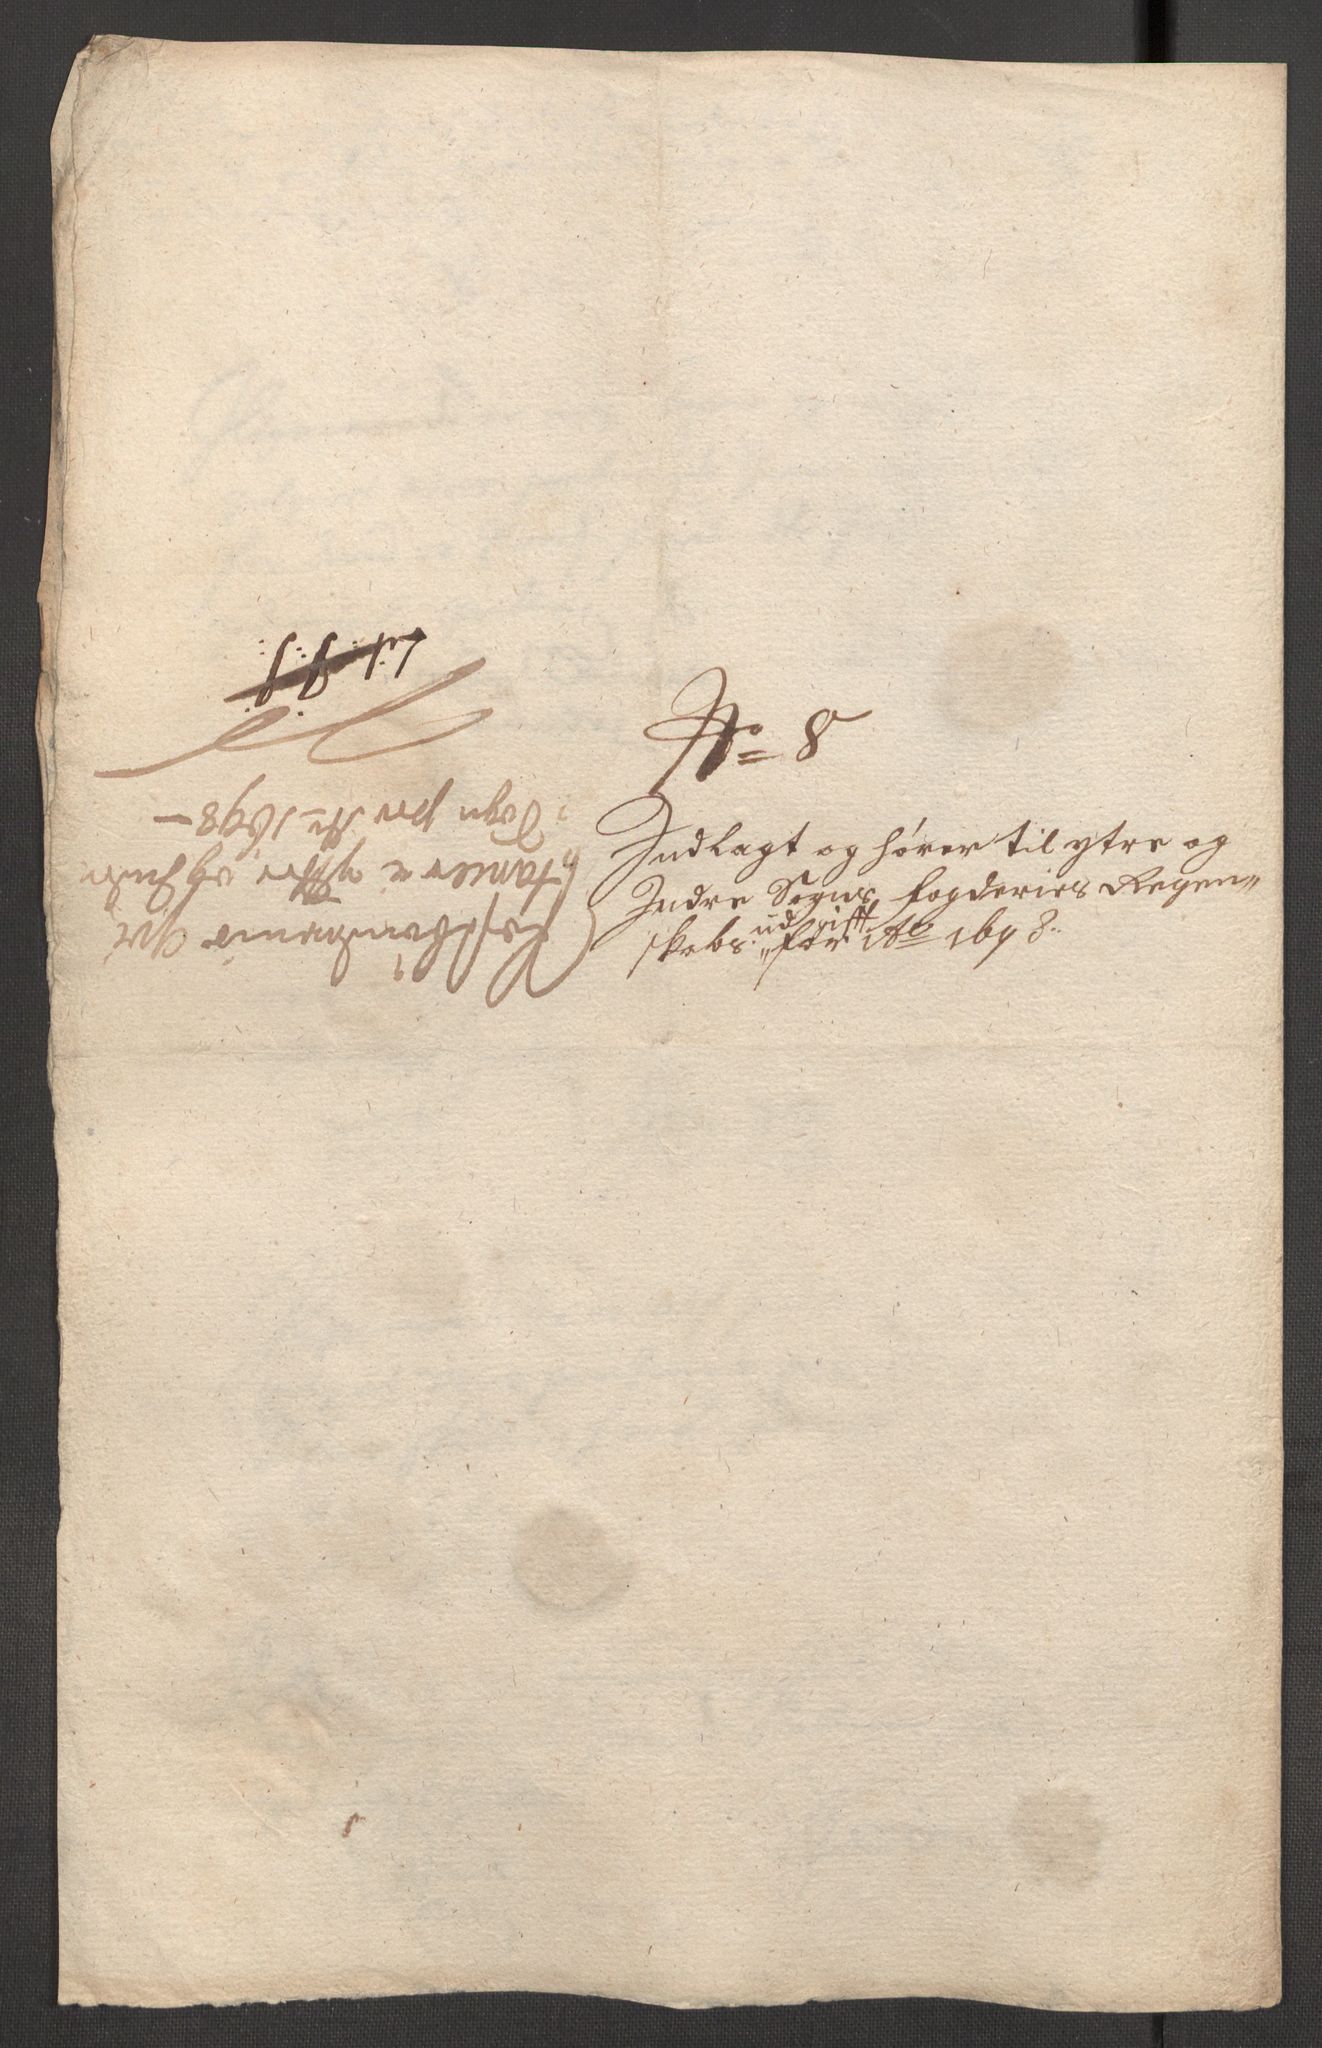 No 8
Indlagt og hører til ytre og
Indre Sogns fogderies Regen„
skabs „ udgifft for Ao 1698.
Lit: F: F:
stancer i yttre og Indre
Sogn pro Ao 1698 –